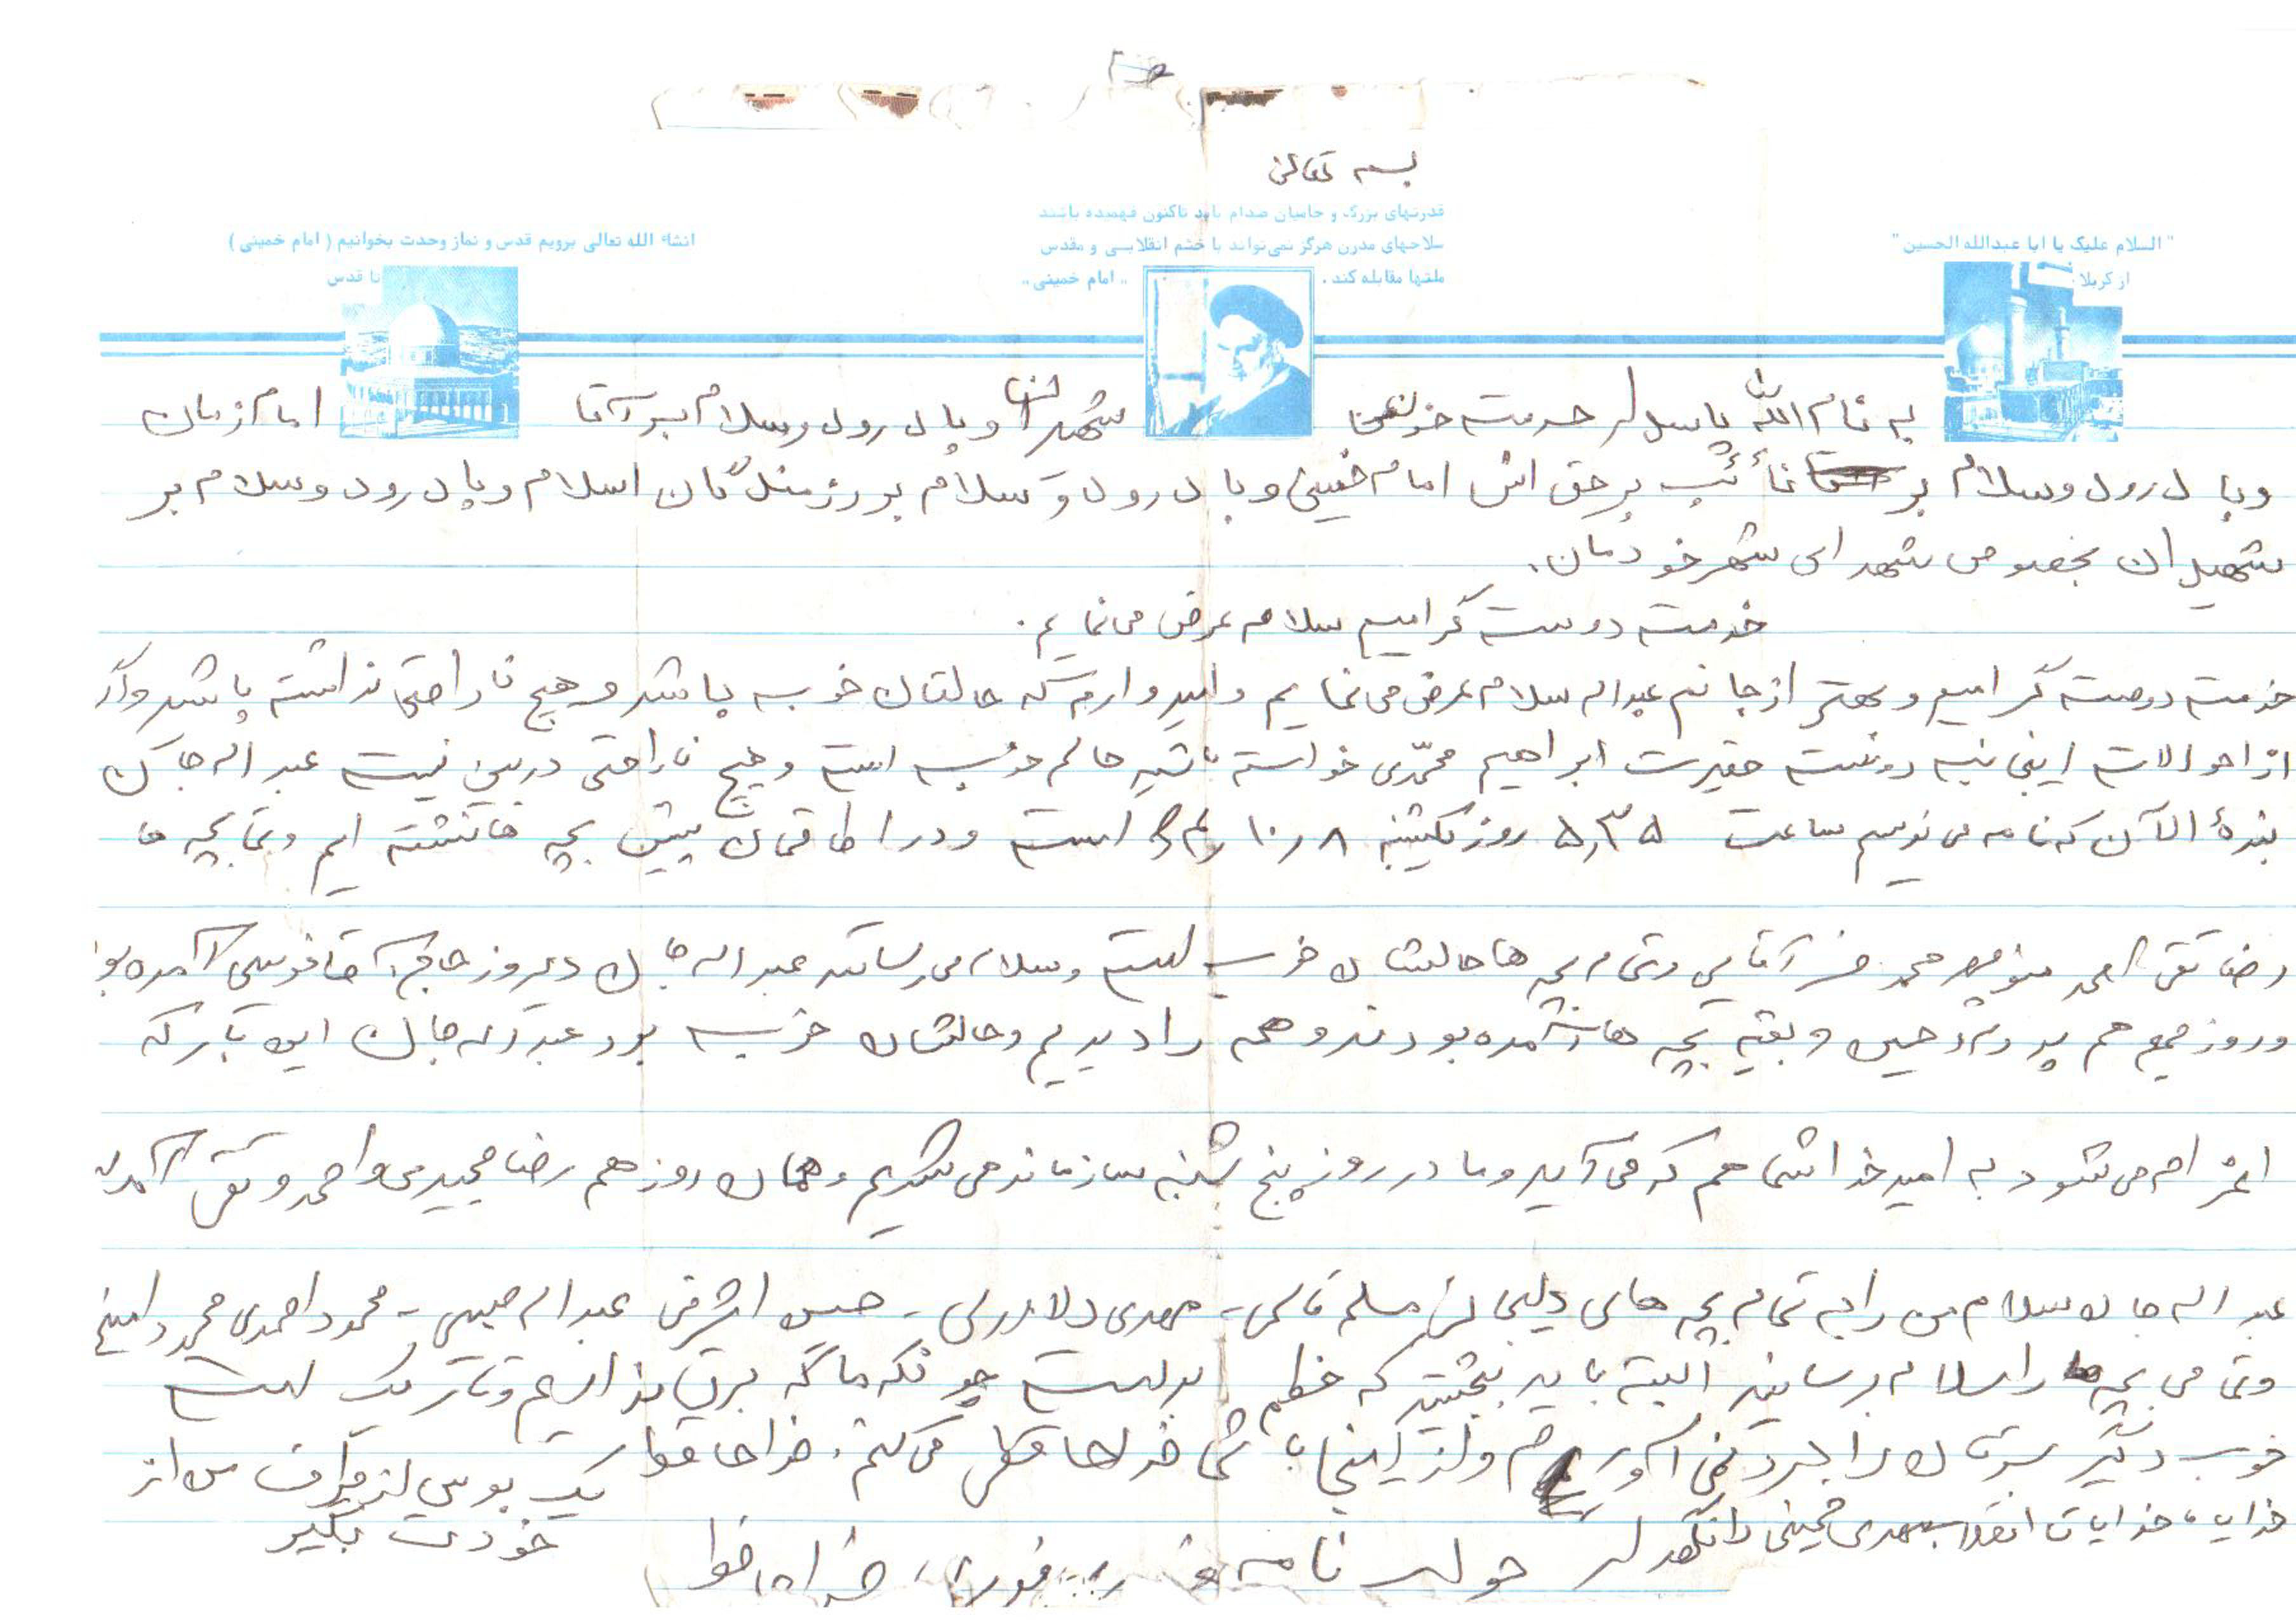 بسمه تعالی
قدرتهای بزرگ و حامیان صدام باید تاکنون فهمیده باشند
سلاحهای مدرن هرگز نمی‌تواند با خشم انقلابی و مقدس
ملتها مقابله کند . ,, امام خمینی ,,
" السلام علیک یا ابا عبدالله الحسین "
از کربلا
انشاء الله تعالی برویم قدس و نماز وحدت بخوانیم ( امام خمینی )
تا قدس
به نام الله پاسدار حرمت خون شهدا و با درود و سلام بر آقا امام زمان
و با درود و سلام بر نائب بر حق اش امام خمینی و با درود و سلام بر رزمندگان اسلام و با درود و سلام بر
شهیدان بخصوص شهدای شهر خودمان.
خدمت دوست گرامیم سلام عرض می نمایم.
خدمت دوست گرامیم و بهتر از جانم عبداله سلام عرض می نمایم و امیدوارم که حالتان خوب باشد و هیچ ناراحتی نداشته باشد و اگر
از احوالات اینجانب دوست حقیرت ابراهیم محمّدی خواسته باشید حالم خوب است و هیچ ناراحتی دربین نیست عبداله جان
بندهٔ الآن که نامه می نویسم ساعت ۵٫۳۵ روز یکشنبه ۱۰٫۸ است و در اطاقمان پیش بچه ها نشسته ایم و تمام بچه ها
رضا تقی احمد منوچهر محمد آقایی و تمام بچه ها حالشان خوب است و سلام می رسانند عبداله جان دیروز حاج آقا آمده بود
و روز جمعه هم پدر حسین و بقیه بچه ها آمده بودند و همه را دیدیم و حالشان خوب بود عبداله جان این بار که
اعزام می شود به امید خدا شما هم که می آید و ما در روز پنج شنبه سازماندهی شدیم و همان روز هم رضا مجیدی و احمد و تقی آمدن
عبداله جان سلام من را به تمام بچه های دلیجان مسلم - مهدی دلاوری - حسین اشرفی عبداله حبیبی - محمود احمدی محمود
و تمامی بچه ها را سلام برسانید البته باید ببخشید که خطم بد است چونکه ما که برق نداریم و تاریک است
خوب دیگر سرتان را بدرد نمی آورم و از اینجا با شما خداحافظی می کنم. خداحافظ
یک بوس از طرف من از
خودت بگیر
خدایا، خدایا تا انقلاب مهدی خمینی را نگهدار
جواب نامه فوری، خداحافظ